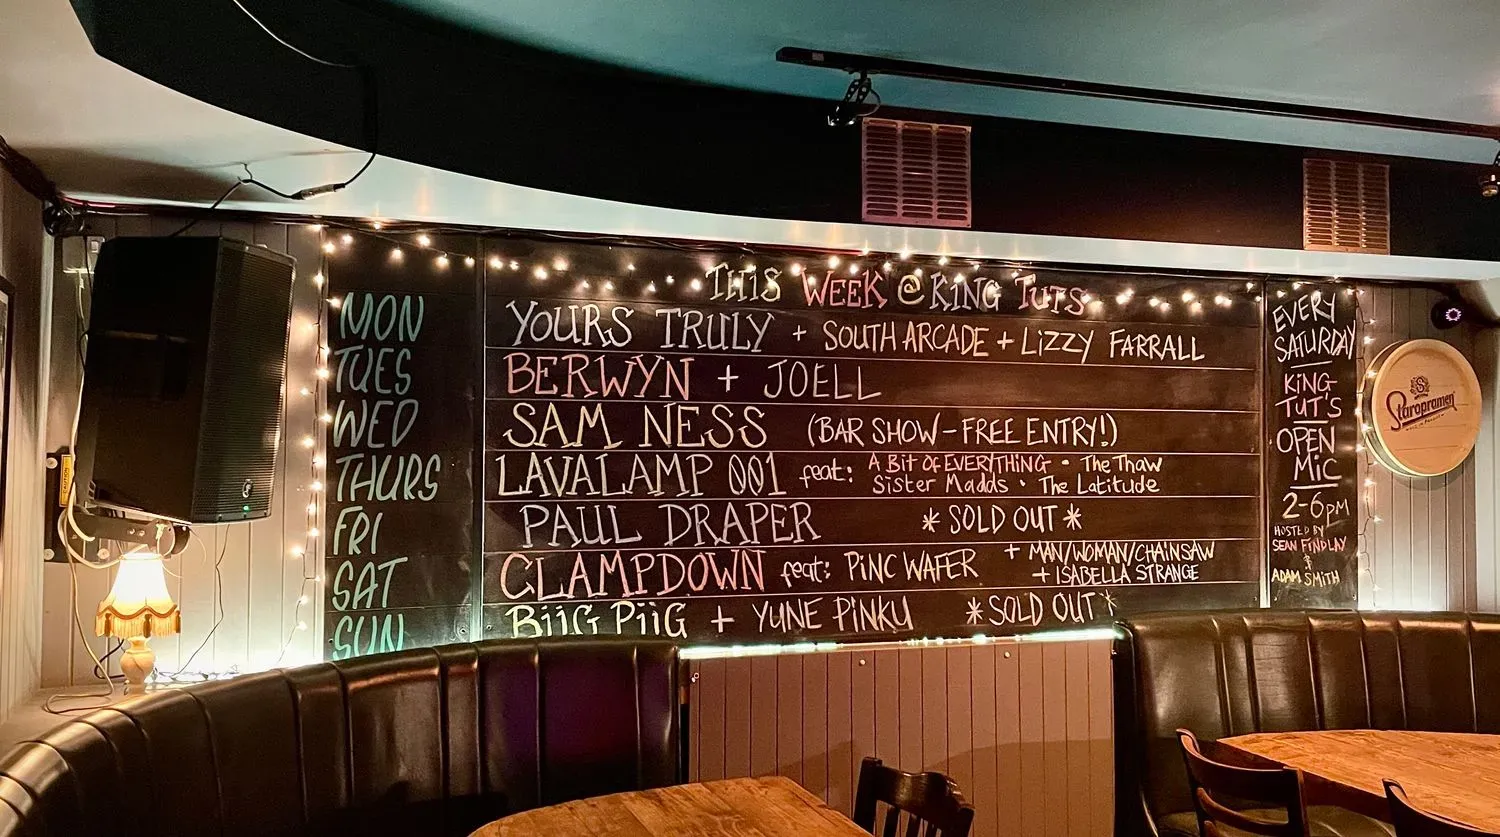 THIS WEEK @ KING TUTS
MON YOURS TRULY + SOUTH ARCADE + LIZZY FARRALL
TUES BERWYN + JOELL
WED SAM NESS (BAR SHOW - FREE ENTRY!)
THURS LAVALAMP 001 feat: A BIT OF EVERYTHING • The Thaw
Sister Madds • The Latitude
FRI PAUL DRAPER * SOLD OUT *
SAT CLAMPDOWN feat: PINC WAFER + MAN/WOMAN/CHAINSAW
+ ISABELLA STRANGE
SUN BIIG PIIG + YUNE PINKU * SOLD OUT *
EVERY
SATURDAY
KING
TUT'S
OPEN
MIC
2-6PM
HOSTED BY
SEAN FINDLAY
&
ADAM SMITH
Staropramen